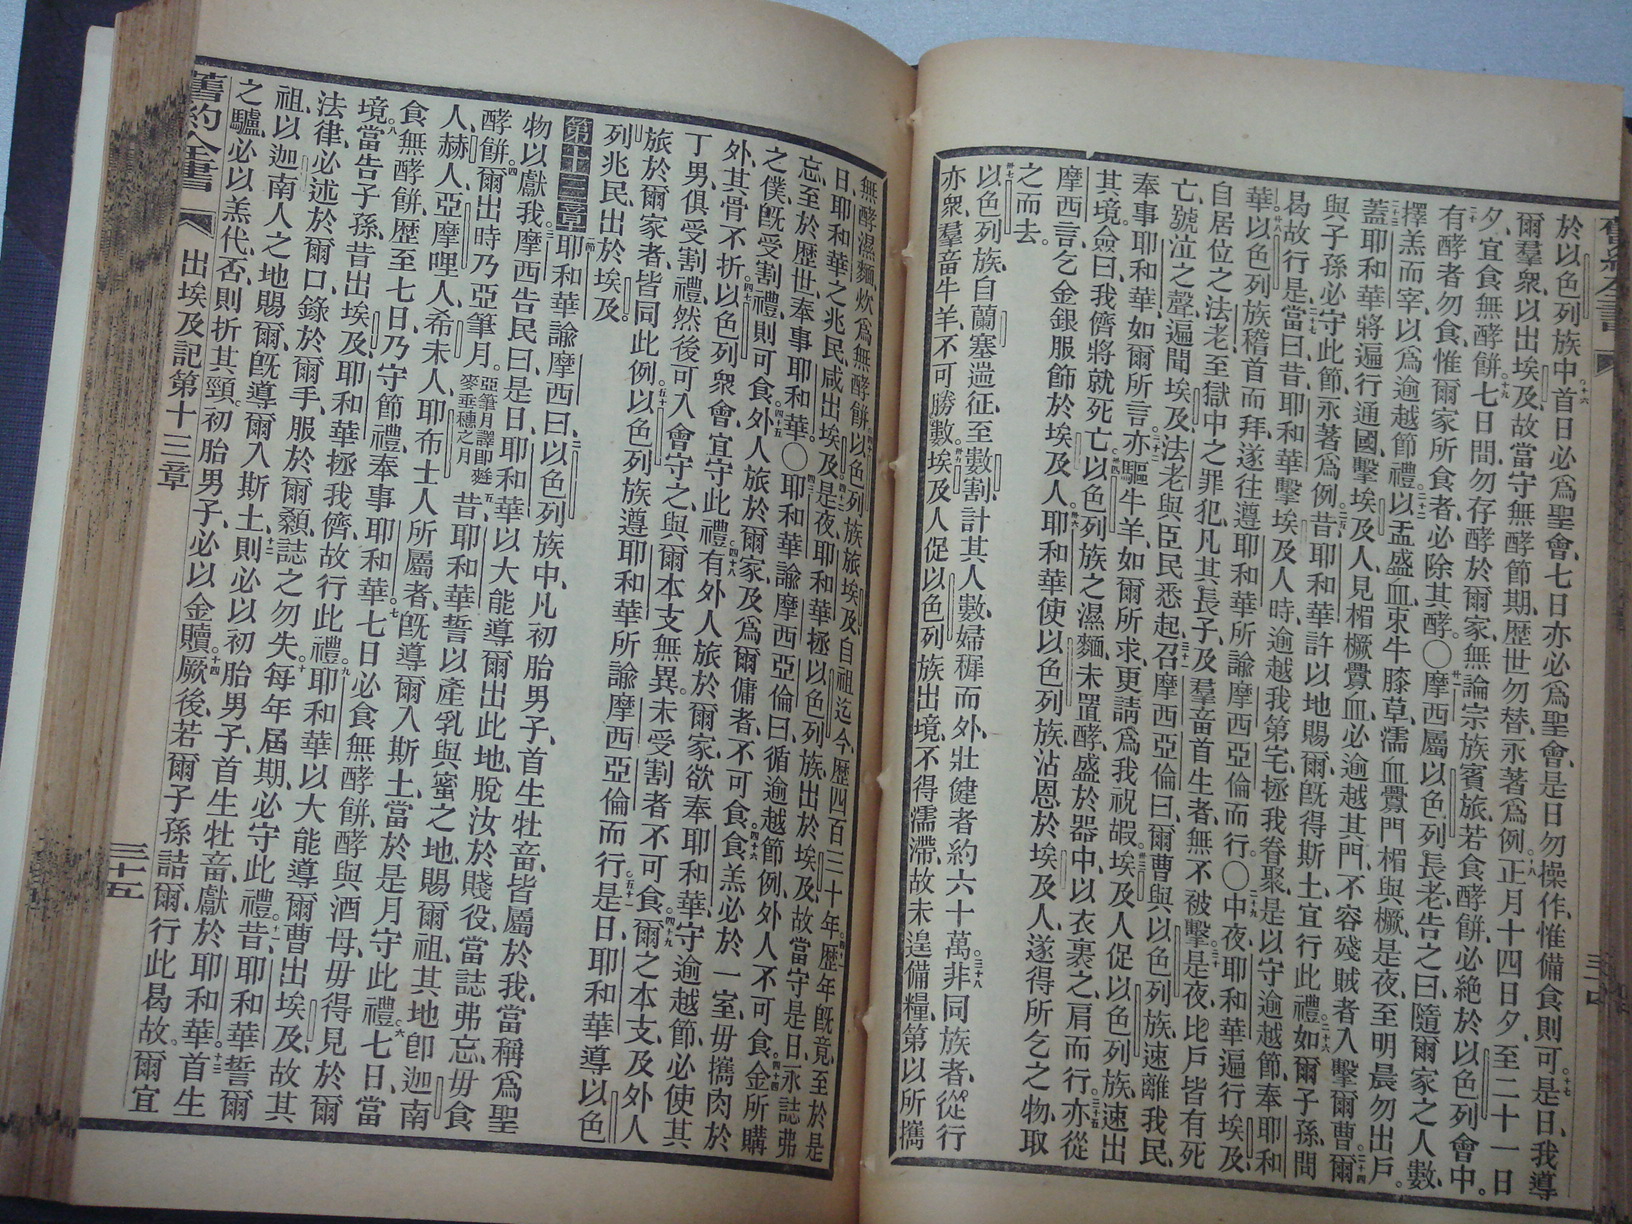 於以色列族中、○十六首日必爲聖會、七日亦必爲聖會、是日勿操作、惟備食則可、○十七是日、我導
爾羣衆以出埃及、故當守無酵節期、歷世勿替、永著爲例、○十八正月十四日夕、至二十一日
夕、宜食無酵餅、○十九七日間、勿存酵於爾家、無論宗族賓旅、若食酵餅、必絶於以色列會中。
二十有酵者勿食、惟爾家所食者、必除其酵。○廿一摩西屬以色列長老、告之曰、隨爾家之人數、
擇羔而宰、以爲逾越節禮、○二十二以盂盛血、束牛膝草、濡血釁門楣與橛、是夜、至明晨勿出戶。
二十三蓋耶和華將遍行通國、擊埃及人、見楣橛釁血、必逾越其門、不容殘賊者入擊爾曹、○二十四爾
與子孫必守此節、永著爲例、○二十五昔耶和華許以地賜爾、旣得斯土、宜行此禮、○二十六如爾子孫、問
曷故行是、○二十七當曰、昔耶和華擊埃及人時、逾越我第宅、拯我眷聚、是以守逾越節、奉耶和
華、○廿八以色列族稽首而拜、遂往遵耶和華所諭摩西亞倫而行。○二十九中夜、耶和華遍行埃及、
自居位之法老、至獄中之罪犯、凡其長子、及羣畜首生者、無不被擊、○三十是夜、比戶皆有死
亡、號泣之聲、遍聞埃及、法老與臣民悉起、○三十一召摩西亞倫曰、爾曹與以色列族、速離我民、
奉事耶和華、如爾所言、○三十二亦驅牛羊、如爾所求、更請爲我祝嘏、○卅三埃及人促以色列族、速出
其境。僉曰、我儕將就死亡、○卅四以色列族之濕麵、未置酵、盛於器中、以衣裹之、肩而行、○三十五亦從
摩西言、乞金銀服飾於埃及人。○卅六耶和華使以色列族沾恩於埃及人、遂得所乞之物、取
之而去。
卅七以色列族、自蘭塞遄征、至數割、計其人數、婦穉而外、壯健者約六十萬、○三十八非同族者、從行
亦衆、羣畜牛羊、不可勝數、○卅九埃及人促以色列族出境、不得濡滯、故未遑備糧、第以所攜
無酵濕麵、炊爲無酵餅、○四十以色列族旅埃及、自祖迄今、歷四百三十年、○四十一歷年旣竟、至於是
日、耶和華之兆民、咸出埃及、○四十二是夜、耶和華拯以色列族出於埃及、故當守是日、永誌弗
忘、至於歷世、奉事耶和華。○四三耶和華諭摩西亞倫曰、循逾越節例、外人不可食、○四十四金所購
之僕、旣受割禮、則可食、○四十五外人旅於爾家、及爲爾傭者、不可食、○四十六食羔必於一室、毋攜肉於
外、其骨不折、○四七以色列衆會、宜守此禮、○四十八有外人旅於爾家、欲奉耶和華、守逾越節、必使其
丁男、俱受割禮、然後可入會守之、與爾本支無異、未受割者不可食、○四十九爾之本支、及外人
旅於爾家者、皆同此例、○五十以色列族遵耶和華所諭摩西亞倫而行、○五十一是日、耶和華導以色
列兆民、出於埃及。
第十三章 一節耶和華諭摩西曰、二以色列族中、凡初胎男子、首生牡畜、皆屬於我、當稱爲聖
物以獻我。○三摩西告民曰、是日、耶和華以大能導爾出此地、脫汝於賤役、當誌弗忘、毋食
酵餅、○四爾出時乃亞筆月。亞筆月譯卽麰麥垂穗之月 五昔耶和華誓以產乳與蜜之地賜爾祖、其地卽迦南
人、赫人、亞摩哩人、希未人、耶布士人所屬者、旣導爾入斯土、當於是月、守此禮、○六七日、當
食無酵餅、歷至七日、乃守節禮、奉事耶和華、○七七日必食無酵餅、酵與酒母、毋得見於爾
境、○八當告子孫、昔出埃及、耶和華拯我儕、故行此禮、○九耶和華以大能導爾曹出埃及、故其
法律、必述於爾口、錄於爾手、服於爾顙、誌之勿失、○十每年屆期、必守此禮。○十一昔耶和華誓爾
祖、以迦南人之地賜爾、旣導爾入斯土、○十二則必以初胎男子、首生牡畜、獻於耶和華、○十三首生
之驢、必以羔代、否則折其頸、初胎男子、必以金贖、○十四厥後、若爾子孫詰爾、行此曷故、爾宜
舊約全書 出埃及記第十三章 三十五